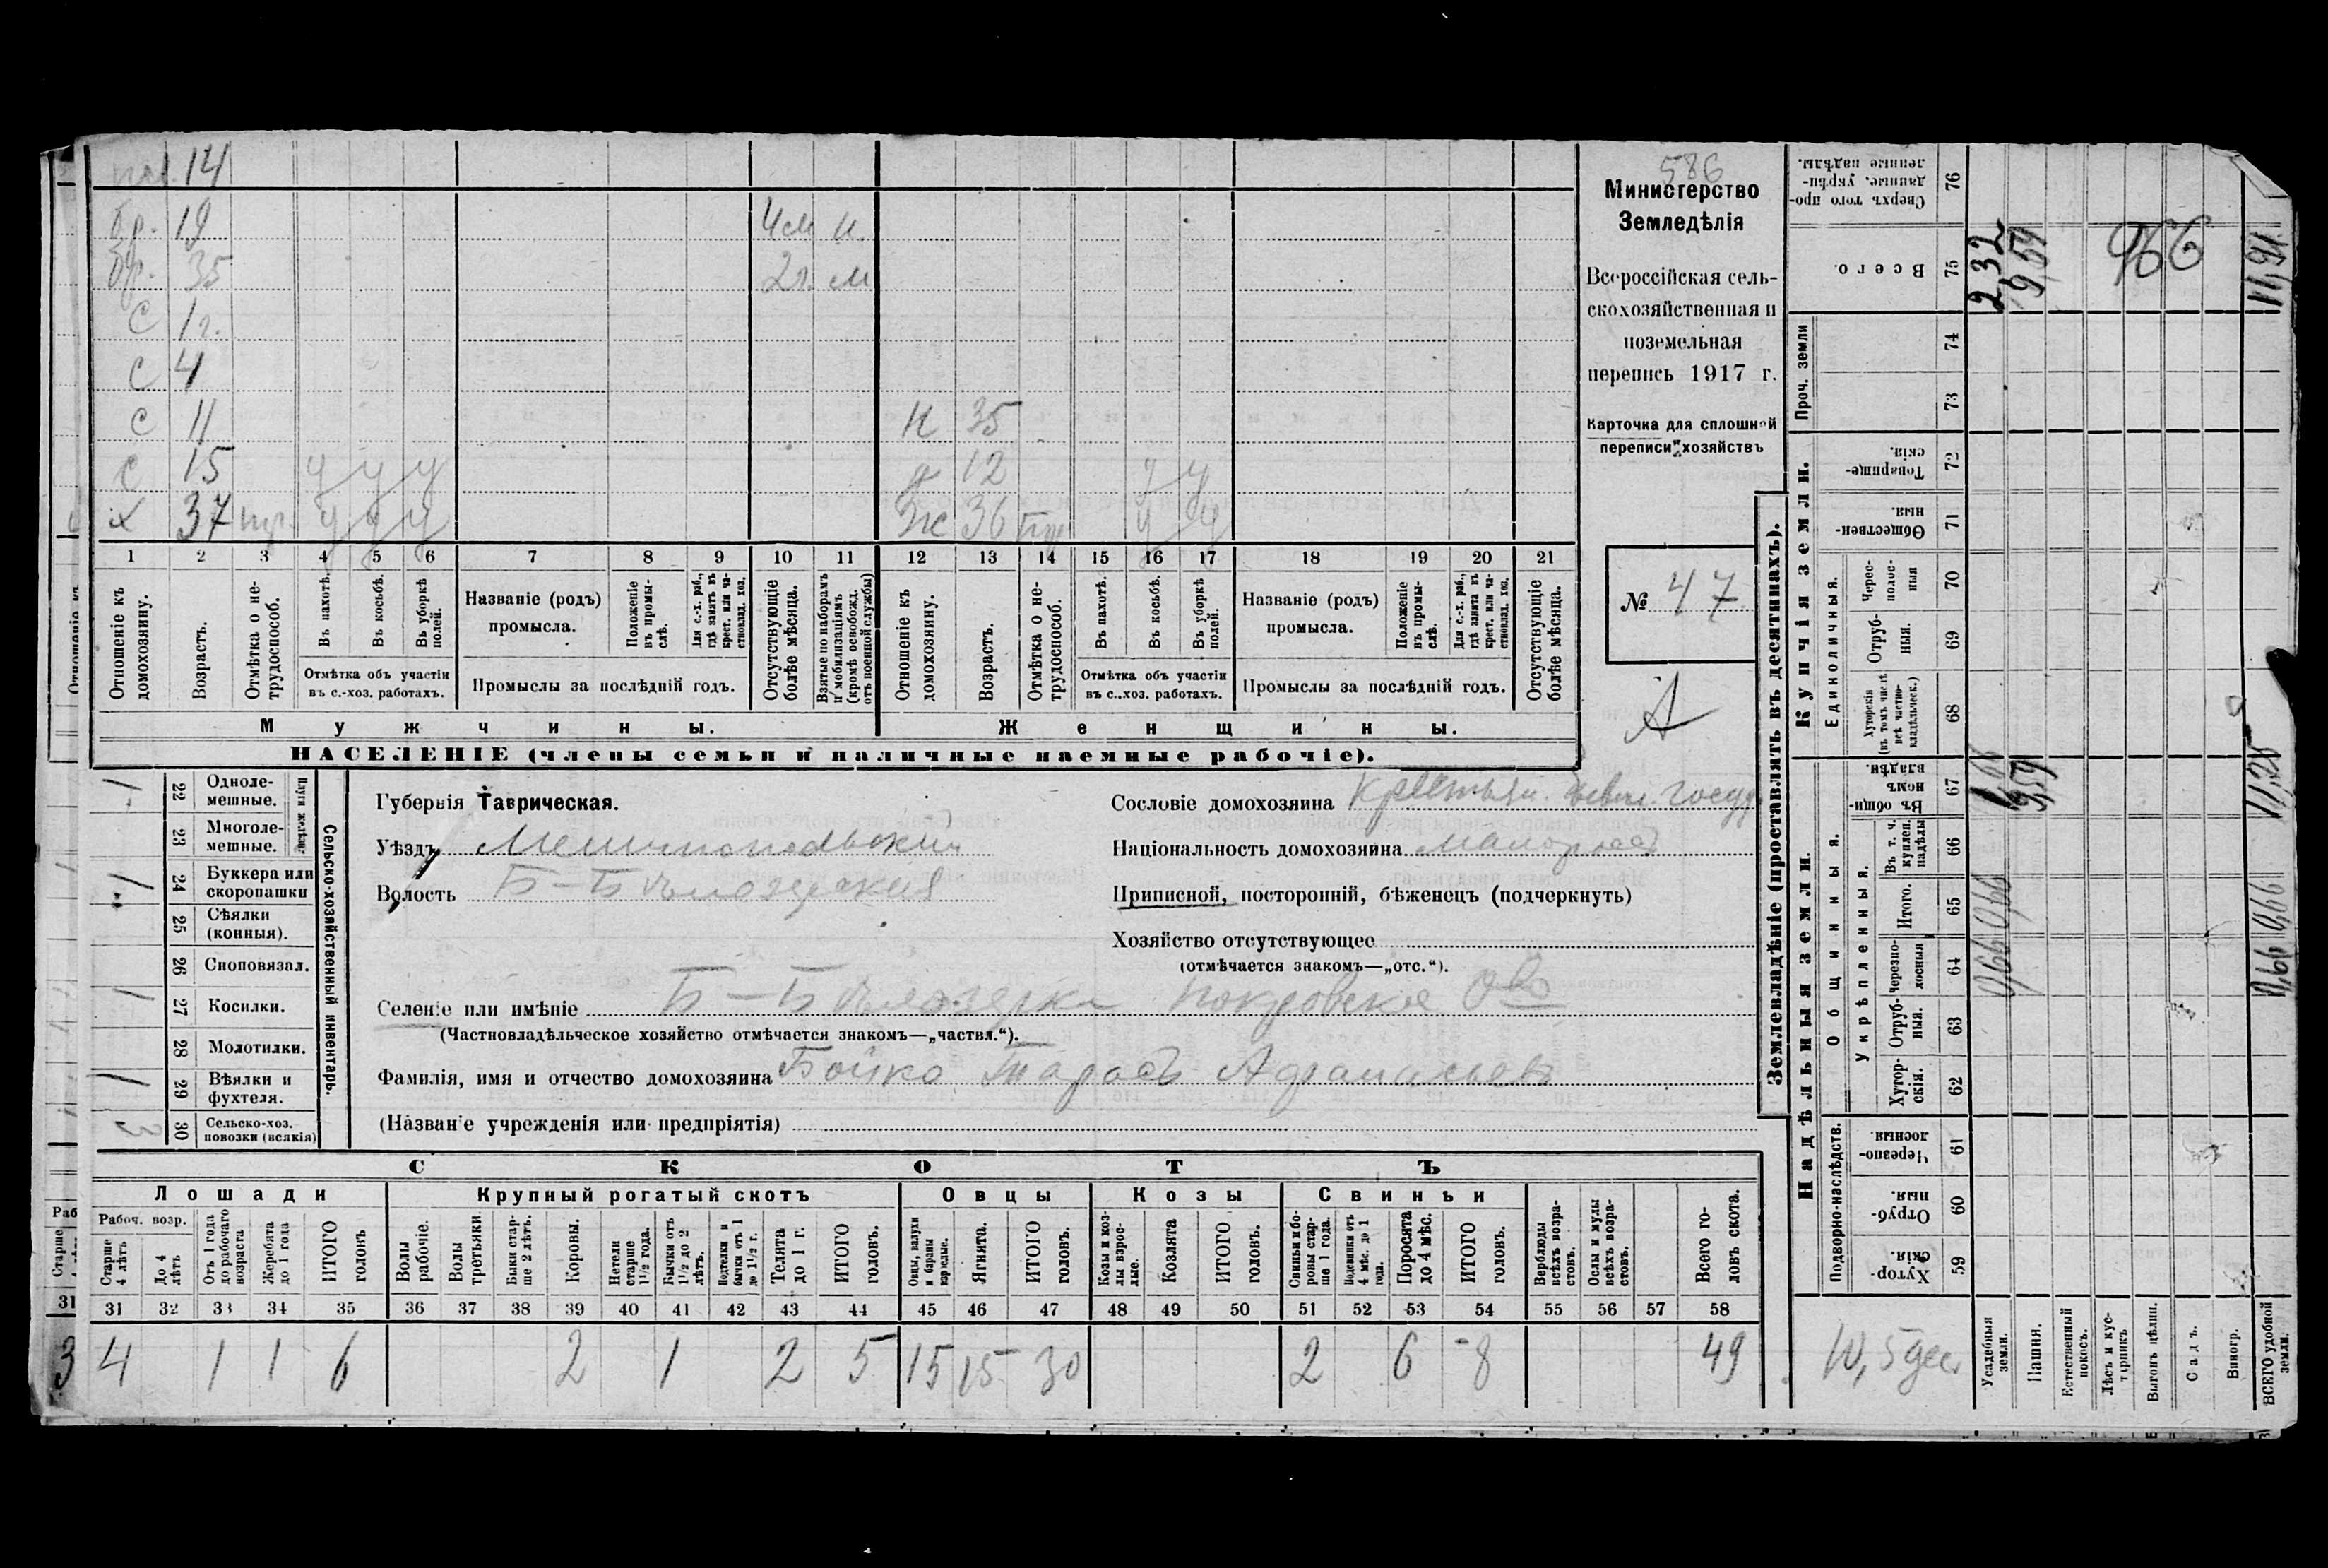 586
Министерство
Земледѣлія
Всероссійская сель-
скохозяйственная и
поземельная
перепись 1917 г.
Карточка для сплошной
переписи хозяйствъ
№ 47
А
14
бр. 19 4м н.
бр. 35 2г. м
с 1г.
с 4
с 11 н 35
с 15 у у у д 12 у у
х 37 гр. у у у ж 36 гр у у
1 2 3 4 5 6 7 8 9 10 11 12 13 14 15 16 17 18 19 20 21
Отношеніе къ домохозяину.
Возрастъ.
Отмѣтка о не-трудоспособ.
Въ пахотѣ.
Въ косьбѣ.
Въ уборкѣ полей.
Отмѣтка объ участіи
въ с.-хоз. работахъ.
Названіе (родъ)
промысла.
Положеніе въ промы-слѣ.
Для с.-х. раб., гдѣ занятъ въ крест. или ча-стновлад. хоз.
Промыслы за послѣдній годъ.
Отсутствующіе болѣе мѣсяца.
Взятые по наборамъ и мобилизаціямъ (кромѣ освобожд. отъ военной службы)
Отношеніе къ домохозяину.
Возрастъ.
Отмѣтка о не-трудоспособ.
Въ пахотѣ.
Въ косьбѣ.
Въ уборкѣ полей.
Отмѣтка объ участіи
въ с.-хоз. работахъ.
Названіе (родъ)
промысла.
Положеніе въ промы-слѣ.
Для с.-х. раб., гдѣ занята въ крест. или ча-стновлад. хоз.
Промыслы за послѣдній годъ.
Отсутствующіе болѣе мѣсяца.
Мужчины.
Женщины.
НАСЕЛЕНІЕ (члены семьи и наличные наемные рабочіе).
Сельско-хозяйственный инвентарь.
Плуги желѣзн.
1 22 Одноле-мешные.
23 Многоле-мешные.
1 24 Буккера или скоропашки
25 Сѣялки (конныя).
26 Сноповязал.
1 27 Косилки.
28 Молотилки.
1 29 Вѣялки и фухтеля.
3 30 Сельско-хоз. повозки (всякія)
Губернія Таврическая.
Уѣздъ Мелитопольскій
Волость Б-Бѣлозерская
Сословіе домохозяина Крестьян. бывш. госуд
Національность домохозяина малороссъ
Приписной, посторонній, бѣженецъ (подчеркнуть)
Хозяйство отсутствующее
(отмѣчается знакомъ—„отс.“).
Селеніе или имѣніе Б-Бѣлозерка Покровское О-во
(Частновладѣльческое хозяйство отмѣчается знакомъ—„частвл.“).
Фамилія, имя и отчество домохозяина Бойко Тарасъ
(Названіе учрежденія или предпріятія)
СКОТЪ
Лошади
Крупный рогатый скотъ
Овцы
Козы
Свиньи
Рабоч. возр.
Старше 4 лѣтъ
До 4 лѣтъ
Отъ 1 года до рабочаго возраста
Жеребята до 1 года
ИТОГО головъ
Волы рабочіе.
Волы третьяки.
Быки стар-ше 2 лѣтъ.
Коровы.
Нетели старше 1½ года.
Бычки отъ 1½ до 2 лѣтъ.
Подтелки и бычки отъ 1 до 1½ г.
Телята до 1 г.
ИТОГО головъ.
Овцы, валухи и бараны взрослые.
Ягнята.
ИТОГО головъ.
Козы и коз-лы взрос-лые.
Козлята
ИТОГО головъ.
Свиньи и бо-ровы стар-ше 1 года.
Подсвинки отъ 4 мѣс. до 1 года.
Поросята до 4 мѣс.
ИТОГО головъ.
Верблюды всѣхъ возра-стовъ.
Ослы и мулы всѣхъ возра-стовъ.
Всего го-ловъ скота.
31 32 33 34 35 36 37 38 39 40 41 42 43 44 45 46 47 48 49 50 51 52 53 54 55 56 57 58
4 1 1 6 2 1 2 5 15 15 30 2 6 8 49
Землевладѣніе (проставлять въ десятинахъ).
Надѣльныя земли.
Купчія земли.
Проч. земли
Подворно-наслѣдств.
Общинныя.
Укрѣпленныя.
Единоличныя.
Хутор-скія. 59
Отруб-ныя 60
Черезпо-лосныя. 61
Хутор-скія. 62
Отруб-ныя. 63
Черезпо-лосныя 64
Итого. 65
Въ т. ч. куплен. надѣлы 66
Въ общи-номъ владѣн. 67
Хуторскія (въ томъ числѣ всѣ частно-владѣльческ.) 68
Отруб-ныя. 69
Черес-полос-ныя 70
Обществен-ныя. 71
Товарище-скія. 72
73
74
Всего. 75
Сверхъ того про-данные, укрѣп-ленные надѣлы. 76
Усадебныя земли. 0,66 1,66 2,32
Пашня. 9,59 9,59
Естественный покосъ.
Лѣсъ и кус-тарникъ
Выгонъ цѣлин. 966
Садъ.
Виногр.
ВСЕГО удобной земли. 0,66 11,25 11,91
10,5 дес.